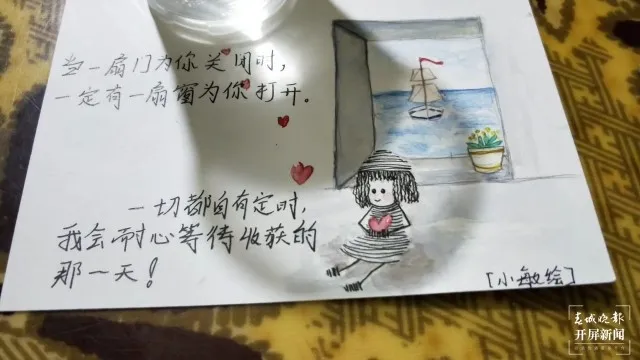 当一扇门为你关闭时，
一定有一扇窗为你打开。
一切都自有定时，
我会耐心等待收获的
那一天！
[小敏绘]
春城晚报
开屏新闻